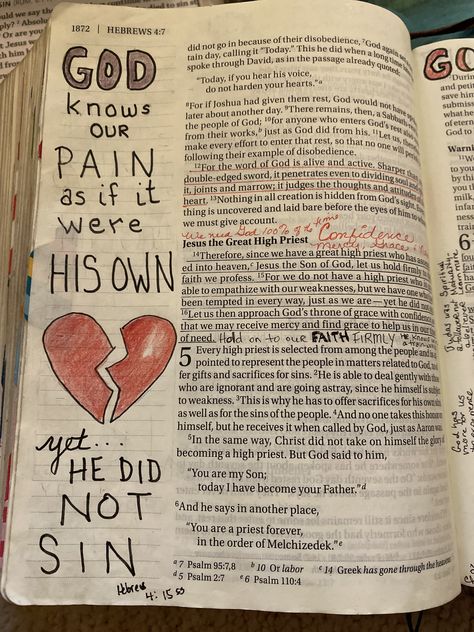 1872 | HEBREWS 4:7
GOD
knows
OUR
PAIN
as if it
were
HIS OWN
yet...
HE DID
NOT
SIN
Hebrews
4:15
did not go in because of their disobedience, ⁷God again set a
tain day, calling it "Today." This he did when a long time
spoke through David, as in the passage already quoted:
"Today, if you hear his voice,
do not harden your hearts."ᵃ
⁸For if Joshua had given them rest, God would not have
later about another day. ⁹There remains, then, a Sabbath
the people of God; ¹⁰for anyone who enters God's rest also
from their works,ᵇ just as God did from his. ¹¹Let us, there
make every effort to enter that rest, so that no one will
following their example of disobedience.
¹²For the word of God is alive and active. Sharper than
double-edged sword, it penetrates even to dividing soul and
it, joints and marrow; it judges the thoughts and attitudes
heart. ¹³Nothing in all creation is hidden from God's sight.
thing is uncovered and laid bare before the eyes of him to
we must give account.
We need God 100% of the time
Confidence
mercy, grace &
Jesus the Great High Priest
¹⁴Therefore, since we have a great high priest who has
ed into heaven,ᶜ Jesus the Son of God, let us hold firmly
faith we profess. ¹⁵For we do not have a high priest who
able to empathize with our weaknesses, but we have one
been tempted in every way, just as we are—yet he did not
¹⁶Let us then approach God's throne of grace with confidence
that we may receive mercy and find grace to help us in our
of need.
Hold on to our FAITH FIRMLY
5 Every high priest is selected from among the people and is
pointed to represent the people in matters related to God,
fer gifts and sacrifices for sins. ²He is able to deal gently with
who are ignorant and are going astray, since he himself is
to weakness. ³This is why he has to offer sacrifices for his own
as well as for the sins of the people. ⁴And no one takes this honor
himself, but he receives it when called by God, just as Aaron
⁵In the same way, Christ did not take on himself the glory
becoming a high priest. But God said to him,
"You are my Son;
today I have become your Father."ᵈ
⁶And he says in another place,
"You are a priest forever,
in the order of Melchizedek."ᵉ
ᵃ7 Psalm 95:7,8 ᵇ10 Or labor ᶜ14 Greek has gone through the heavens
ᵈ5 Psalm 2:7 ᵉ6 Psalm 110:4